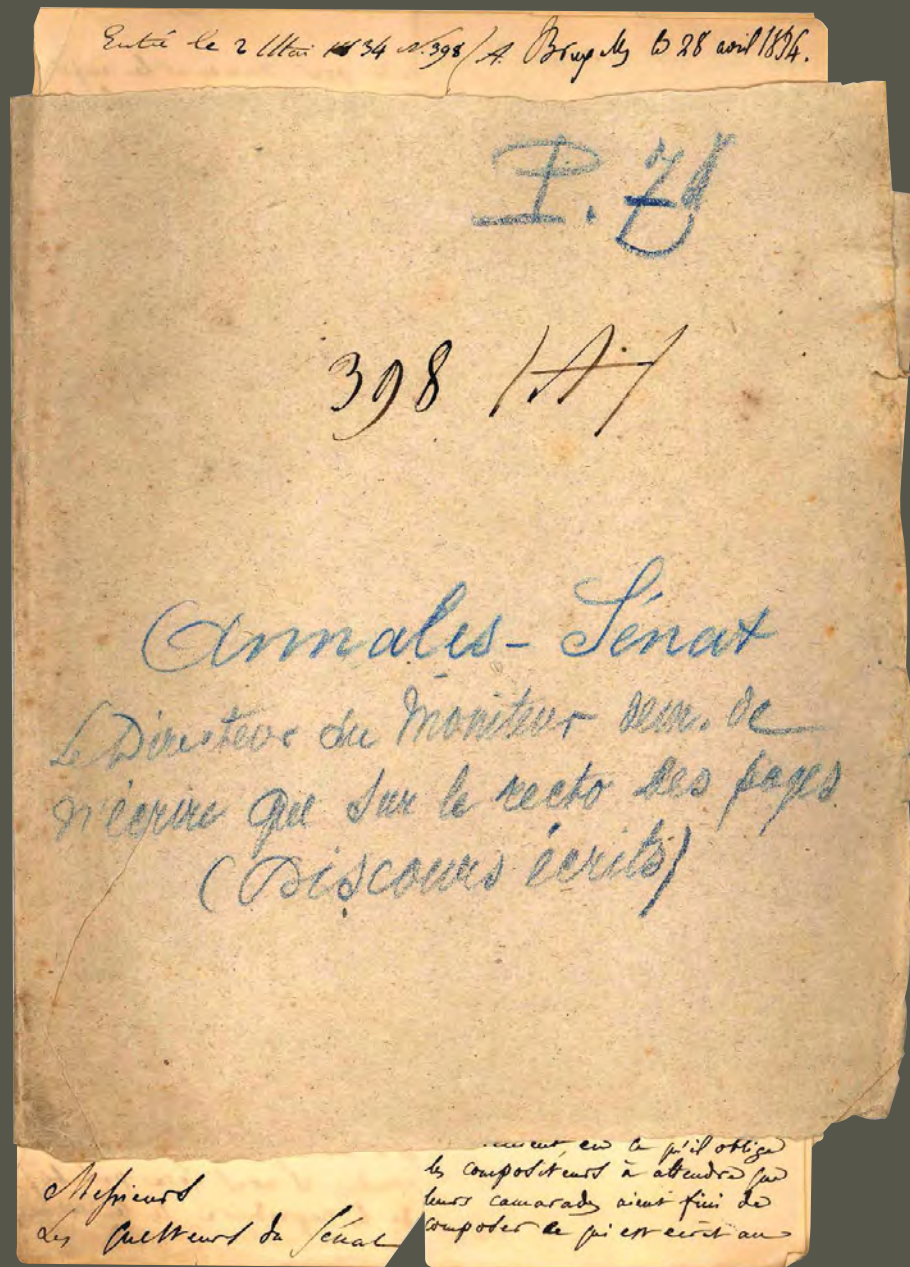 Entré le 2 Mai 34 N. 398 / A. Bruxelles le 28 avril 1834.
P. 7
398 /A/
Annales - Sénat
Le Directeur du Moniteur dem. de
n'écrire que sur le recto des pages
(Discours écrits)
Messieurs
Les Questeurs du Sénat
en ce qu'il oblige
les compositeurs à attendre que
leurs camarades aient fini de
composer ce qui est écrit au